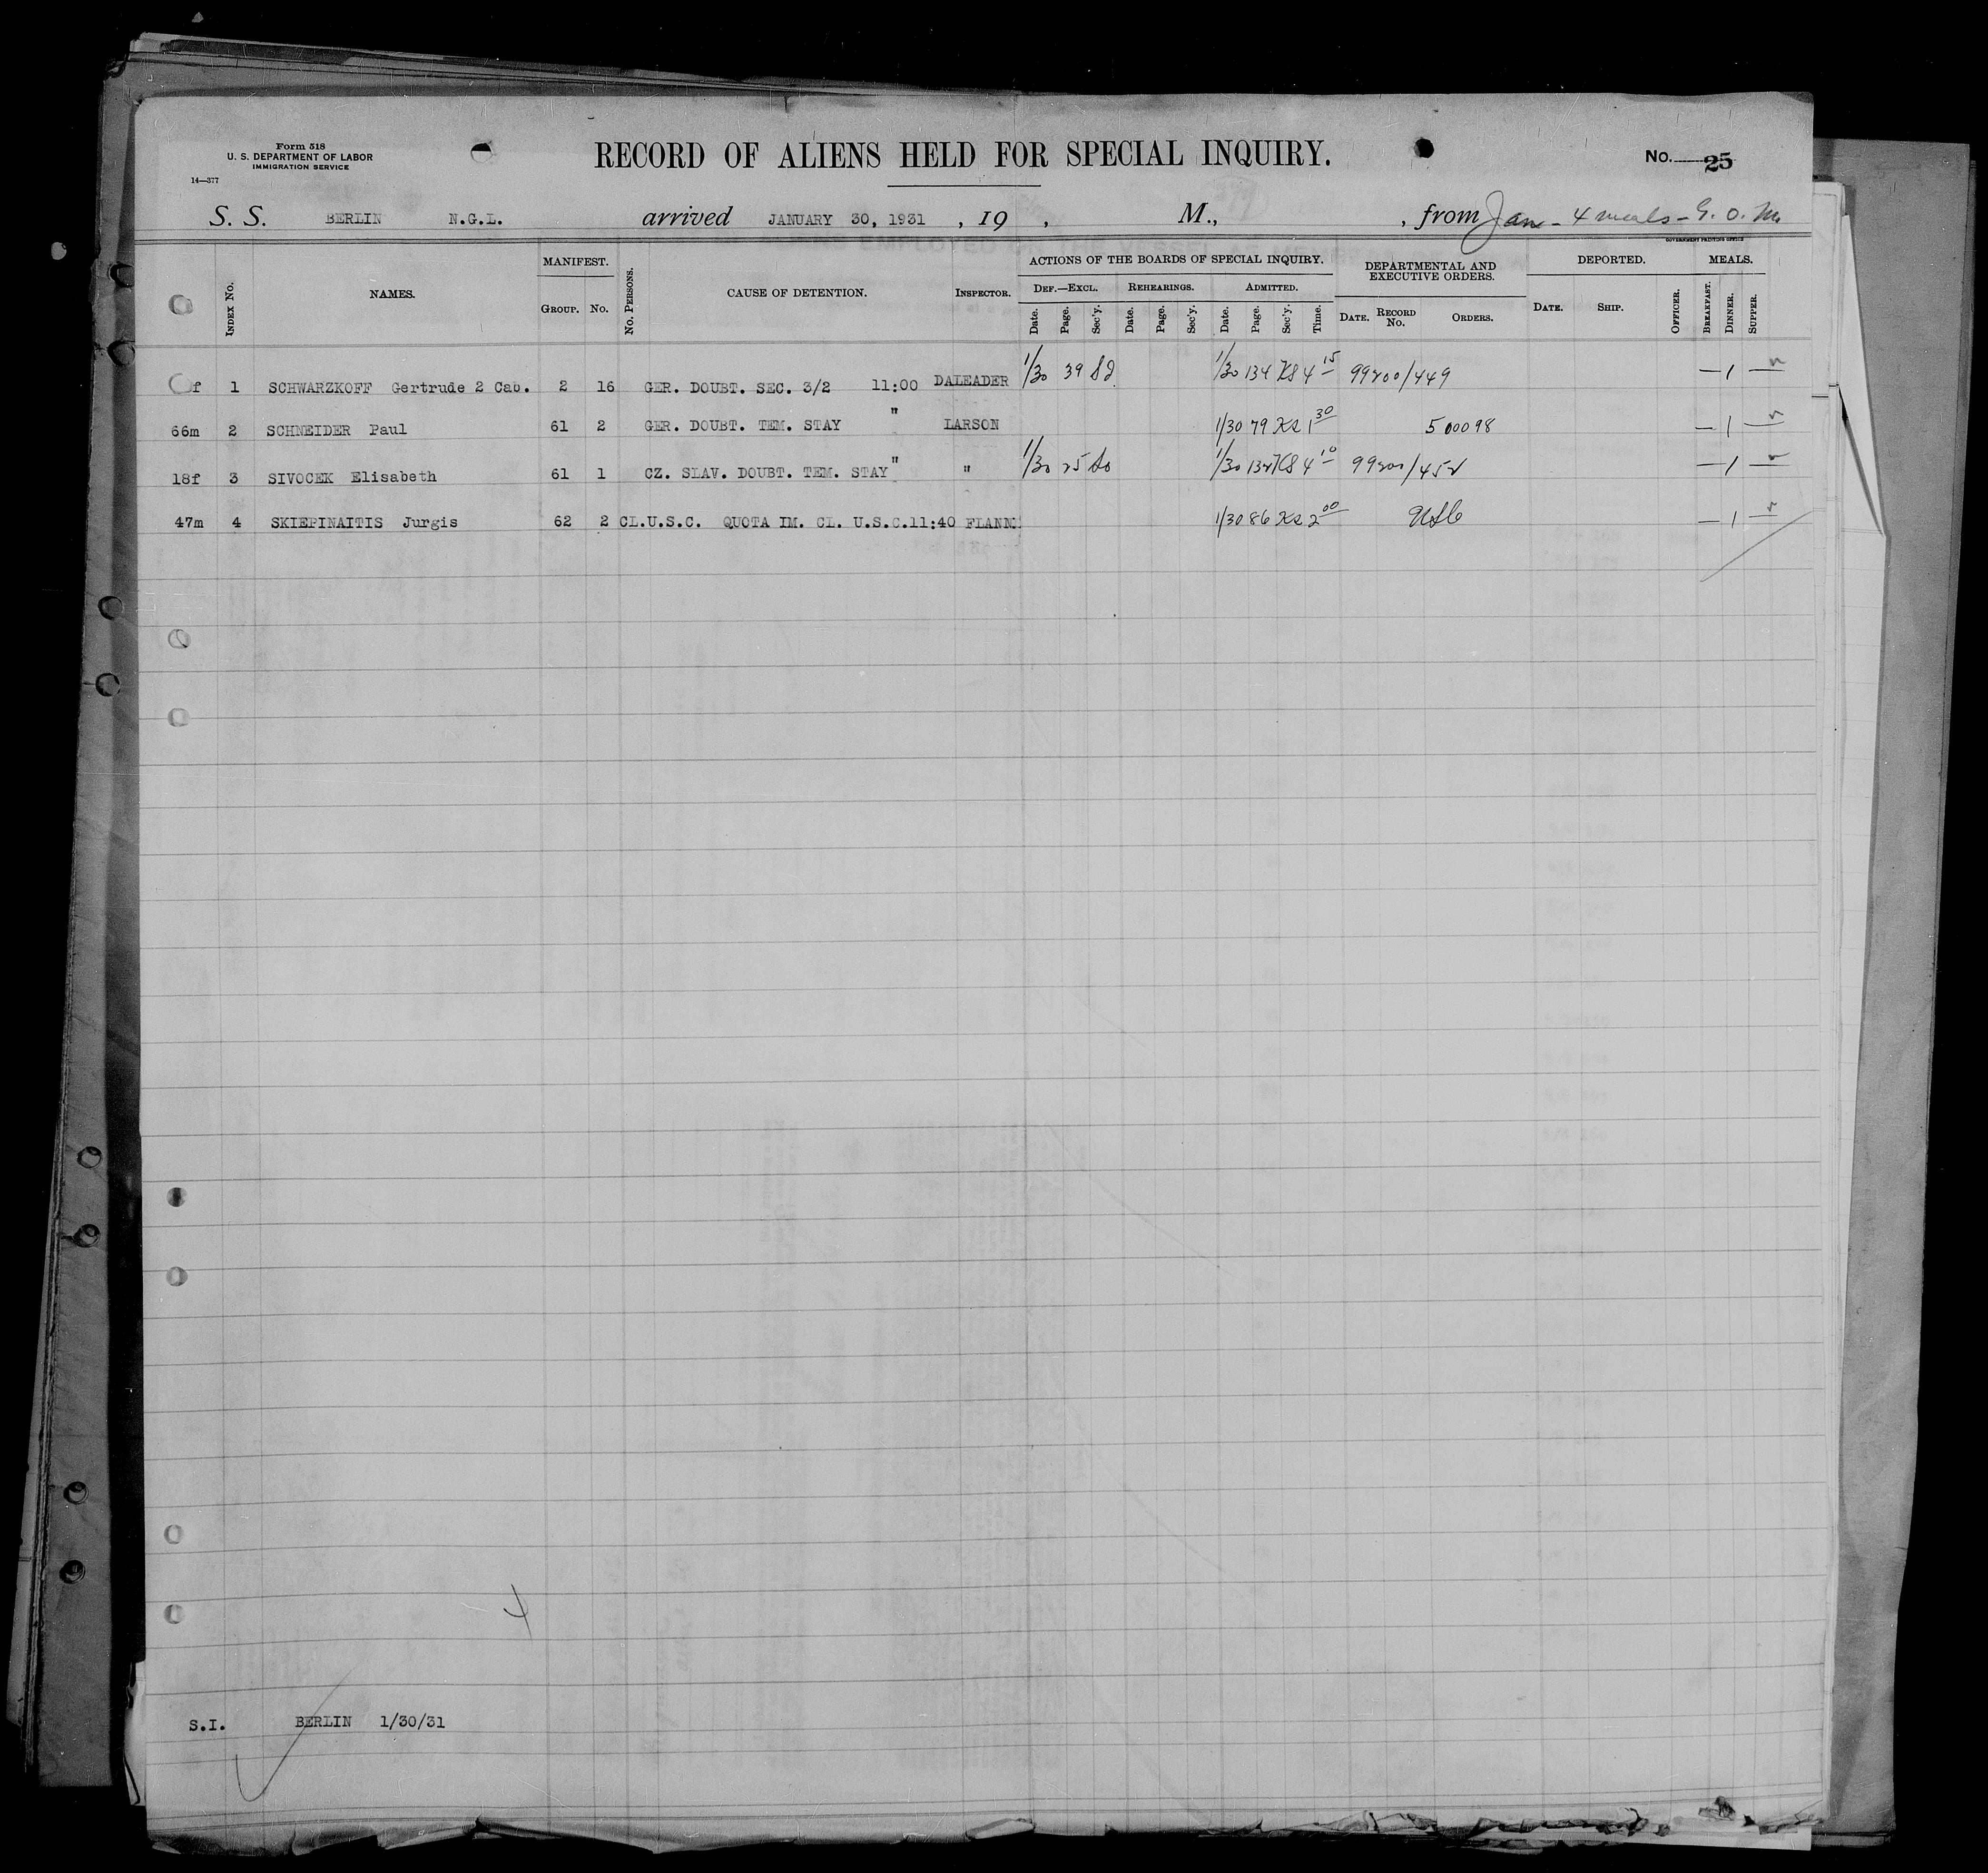 Form 518
U. S. DEPARTMENT OF LABOR
IMMIGRATION SERVICE
14—377
RECORD OF ALIENS HELD FOR SPECIAL INQUIRY.
No. 25
S. S. BERLIN N.G.L. arrived JANUARY 30, 1931 , 19 , M., , from Jan - 4 meals - G. O. M.
GOVERNMENT PRINTING OFFICE
INDEX No. NAMES. MANIFEST. GROUP. No. No. PERSONS. CAUSE OF DETENTION. INSPECTOR.
ACTIONS OF THE BOARDS OF SPECIAL INQUIRY.
DEF.—EXCL. REHEARINGS. ADMITTED.
Date. Page. Sec'y. Date. Page. Sec'y. Date. Page. Sec'y. Time.
DEPARTMENTAL AND EXECUTIVE ORDERS.
DATE. RECORD No. ORDERS.
DEPORTED.
DATE. SHIP. OFFICER.
MEALS.
BREAKFAST. DINNER. SUPPER.
f 1 SCHWARZKOFF Gertrude 2 Cab. 2 16 GER. DOUBT. SEC. 3/2 11:00 DALEADER 1/30 39 1/30 134 KS 4 15 99200/449 — 1 —
66m 2 SCHNEIDER Paul 61 2 GER. DOUBT. TEM. STAY " LARSON 1/30 79 1 30 500098 — 1 —
18f 3 SIVOCEK Elisabeth 61 1 CZ. SLAV. DOUBT. TEM. STAY " " 1/30 25 1/30 132 KS 4 10 99200/452 — 1 —
47m 4 SKIEPINAITIS Jurgis 62 2 CL.U.S.C. QUOTA IM. CL. U.S.C. 11:40 FLANN 1/30 86 2 00 USC — 1 —
4
S.I. BERLIN 1/30/31